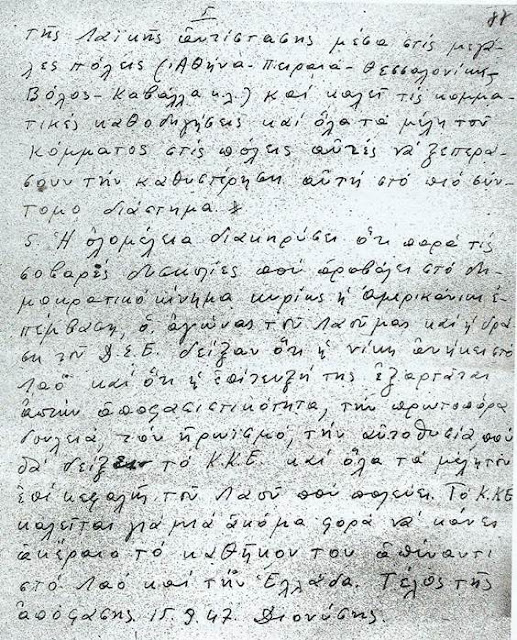 5 88
τῆς λαϊκῆς ἀντίστασης μέσα στίς μεγά-
λες πόλεις (Ἀθήνα-Πειραιά-Θεσσαλονίκη-
Βόλος-Καβάλλα κ.λ.) καί καλεῖ τίς κομμα-
τικές καθοδηγήσεις καί ὅλα τά μέλη τοῦ
κόμματος στίς πόλεις αὐτές νά ξεπερά-
σουν τήν καθυστέρηση αὐτή στό πιό σύν-
τομο διάστημα.
5. Ἡ ὁλομέλεια διακηρύσει ὅτι παρά τίς
σοβαρές δυσκολίες πού προβάλει στό δη-
μοκρατικό κίνημα κυρίως ἡ ἀμερικάνικη ἐ-
πέμβαση, ὁ ἀγώνας τοῦ λαοῦ μας καί ἡ δρά-
ση τοῦ Δ.Σ.Ε. δείξαν ὅτι ἡ νίκη ἀνήκει στό
λαό καί ὅτι ἡ ἐπίτευξή της ἐξαρτάται
ἀπτήν ἀποφασιστικότητα, τήν πρωτοπόρα
δουλειά, τόν ἡρωισμό, τήν αὐτοθυσία πού
θά δείξει τό Κ.Κ.Ε. καί ὅλα τά μέλη του
ἐπί κεφαλῆς τοῦ λαοῦ πού παλεύει. Τό Κ.Κ.Ε
καλεῖται γιά μιά ἀκόμα φορά νά κάνει
ἀκέραιο τό καθῆκον του ἀπέναντι
στό λαό καί τήν Ἑλλάδα. Τέλος τῆς
ἀπόφασης 15.9.47. Διονύσης.